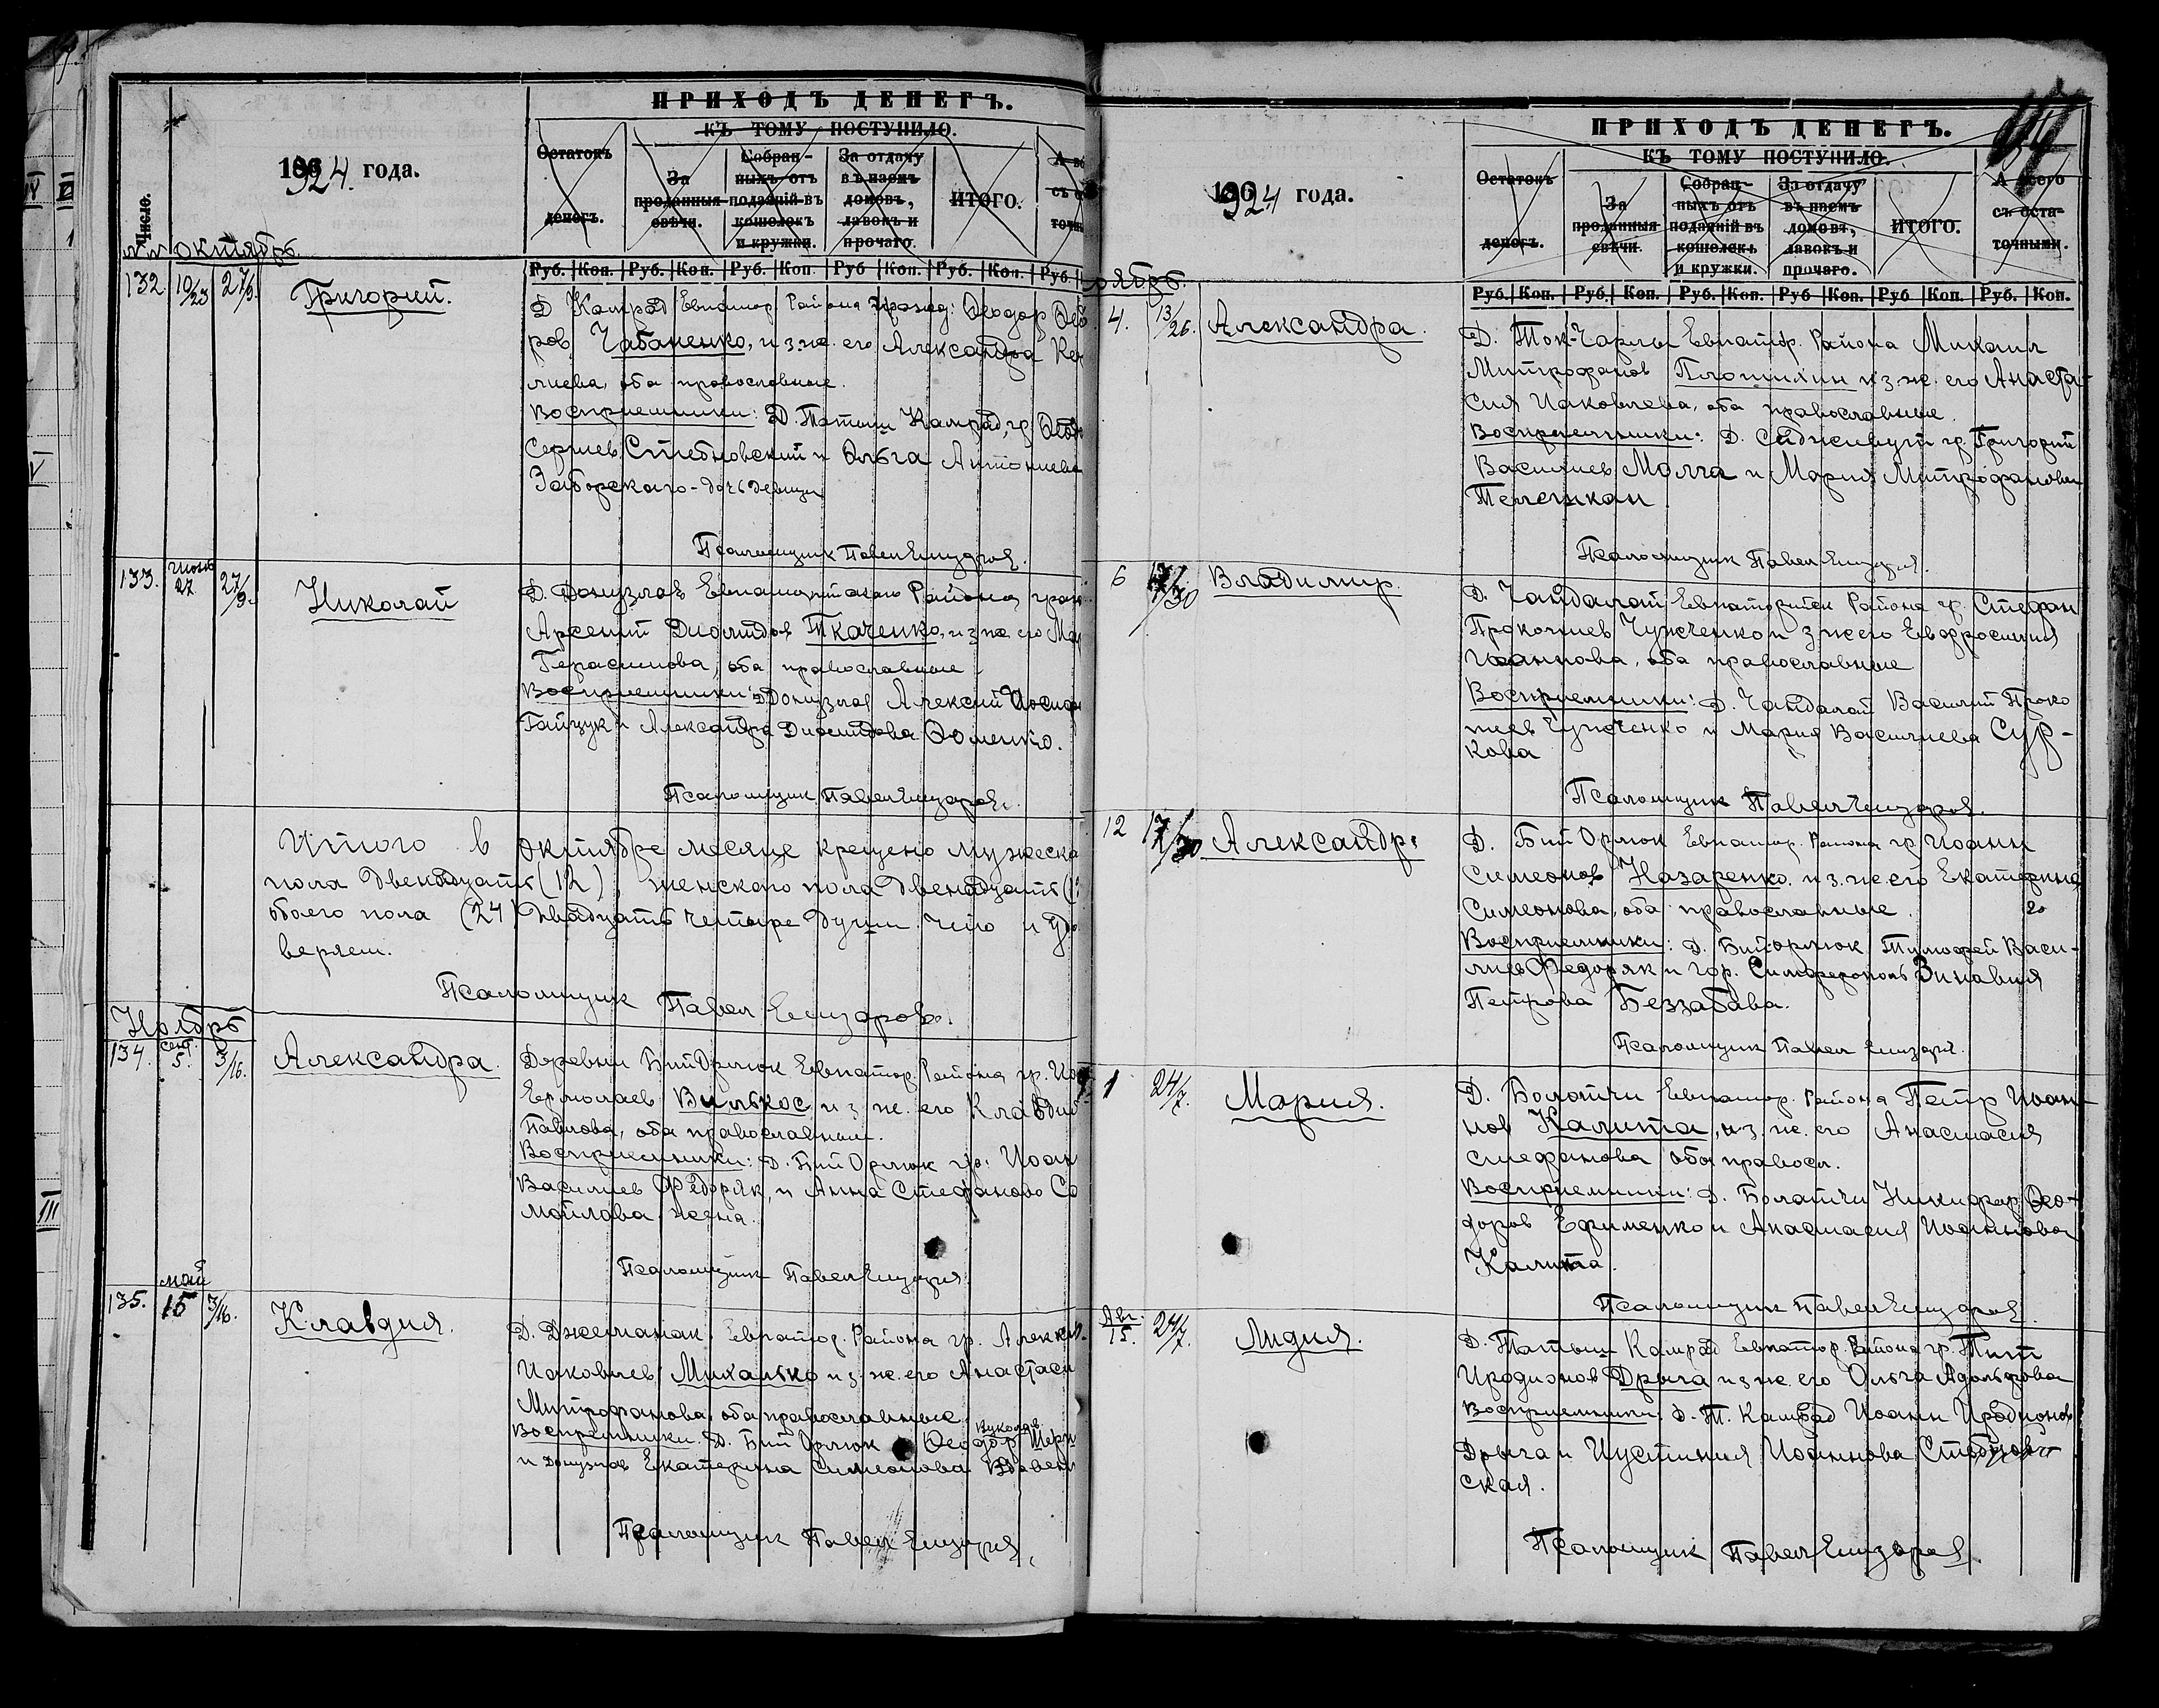 1924 года.
ПРИХОДЪ ДЕНЕГЪ.
КЪ ТОМУ ПОСТУПИЛО.
Остатокъ денегъ.
За проданныя свѣчи.
Собран-ныхъ отъ подаяній въ кошелекъ и кружки.
За отдачу въ наемъ домовъ, лавокъ и прочаго.
ИТОГО.
Число.
Октябрь.
Руб. Коп. Руб. Коп. Руб. Коп. Руб Коп. Руб. Коп. Руб
132 10/23 27/9. Григорий.
Д Камрад Евпатор. Района гражд: Феодор
ров Чабаненко, и з. ж. его Александра
лиева, оба православные.
Восприемники: Д. Татыш Камрад, гр
Сергиев Стебновский и Ольга Антониева
Заборского - дочь девица
Псаломщик Павел Елизаров.
133. Июнь 27 27/9. Николай
Д. Донузлав Евпаторийскаго Района граж
Арсений Диомидов Ткаченко, и з ж его
Герасимова, оба православные
Восприемники: Д Донузлав Алексий Иосиф
Гайчук и Александра Диомидова Фоменко.
Псаломщик Павел Елизаров.
Итого в Октябре месяце крещено мужеска
пола двенадцать (12), женского пола двенадцать (12
обоего пола (24) двадцать четыре души. Что и удо
веряем.
Псаломщик Павел Елизаров.
Ноябрь
134. сент. 5. 3/16. Александра.
Деревни Бий Орлюк Евпатор. Района гр. Иоа
Ермолаев Вилькос и з. ж. его Клавдия
Павлова, оба православные.
Восприемники: Д. Бий Орлюк гр: Иоан
Василиев Федоряк, и Анна Стефаново Са
мойлова жена.
Псаломщик Павел Елизаров
135. май 15 3/16. Клавдия.
Д. Джелманак Евпатор. Района гр. Алексий
Иаковлев Михалько и з. ж. его Анастаси
Митрофанова, оба православные.
Восприемники: Д. Бий Орлюк Феодор
и Донузлав Екатерина Симеонова
Псаломщик Павел Елизаров,
1924 года.
ПРИХОДЪ ДЕНЕГЪ.
КЪ ТОМУ ПОСТУПИЛО.
Остатокъ денегъ.
За проданныя свѣчи.
Собран-ныхъ отъ подаяній въ кошелекъ и кружки.
За отдачу въ наемъ домовъ, лавокъ и прочаго.
ИТОГО.
А всего съ оста-точными.
оябрь.
Руб. Коп. Руб. Коп. Руб. Коп. Руб Коп. Руб Коп. Руб. Коп.
4. 13/26. Александра.
Д. Ток-Чарлы Евпатор. Района Михаил
Митрофанов Плотилин и з. ж. его Анаста
сия Иаковлева, оба православные.
Восприемники: Д. Сиджеут гр. Григорий
Василиев Молча и Мария Митрофановна
Телешкан
Псаломщик Павел Елизаров.
6 17/30 Владимир.
Д. Чандалай Евпаторийск Района гр. Стефан
Прокопиев Чужченко и з ж его Евдросиния
Иоаннова, оба православные
Восприемники: Д. Чандалай Василий Проко
пиев Чужченко и Мария Василиева Сур-
кова
Псаломщик Павел Елизаров.
12 17/30 Александр.
Д. Бий Орлюк Евпатор. Района гр Иоанн
Симеонов Назаренко и з. ж. его Екатерина
Симеонова, оба православные.
Восприемники: Д. Бий орлюк Тимофей Васи-
лиев Федоряк и гор. Симферополь Зинавия
Петрова Беззабава.
Псаломщик Павел Елизаров.
1 24/7. Мария.
Д. Болатчи Евпатор. Района Петр Иоан-
нов Калита, и з. ж. его Анастасия
Стефанова оба правосл.
Восприемники: Д. Болатчи Никифор Фео-
доров Ефименко и Анастасия Иоаннова
Калита.
Псаломщик Павел Елизаров.
Авг. 15. 24/7. Лидия.
Д. Татыш Камрад Евпатор. Района гр. Тит
Иродионов Дрыга и з ж. его Ольга Адольфова
Восприемники: Д. Т. Камрад Иоанн Иродионов
Дрыга и Иустиния Иоаннова Стебнов
ская.
Псаломщик Павел Елизаров.